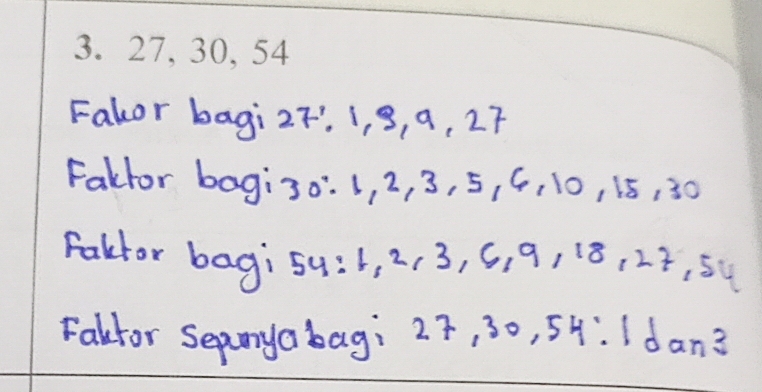 3. 27, 30, 54
Fakor bagi 27: 1, 3, 9, 27
Faktor bagi 30: 1, 2, 3, 5, 6, 10, 15, 30
Faktor bagi 54: 1, 2, 3, 6, 9, 18, 27, 54
Faktor Sepunya bagi 27, 30, 54: 1 dan 3